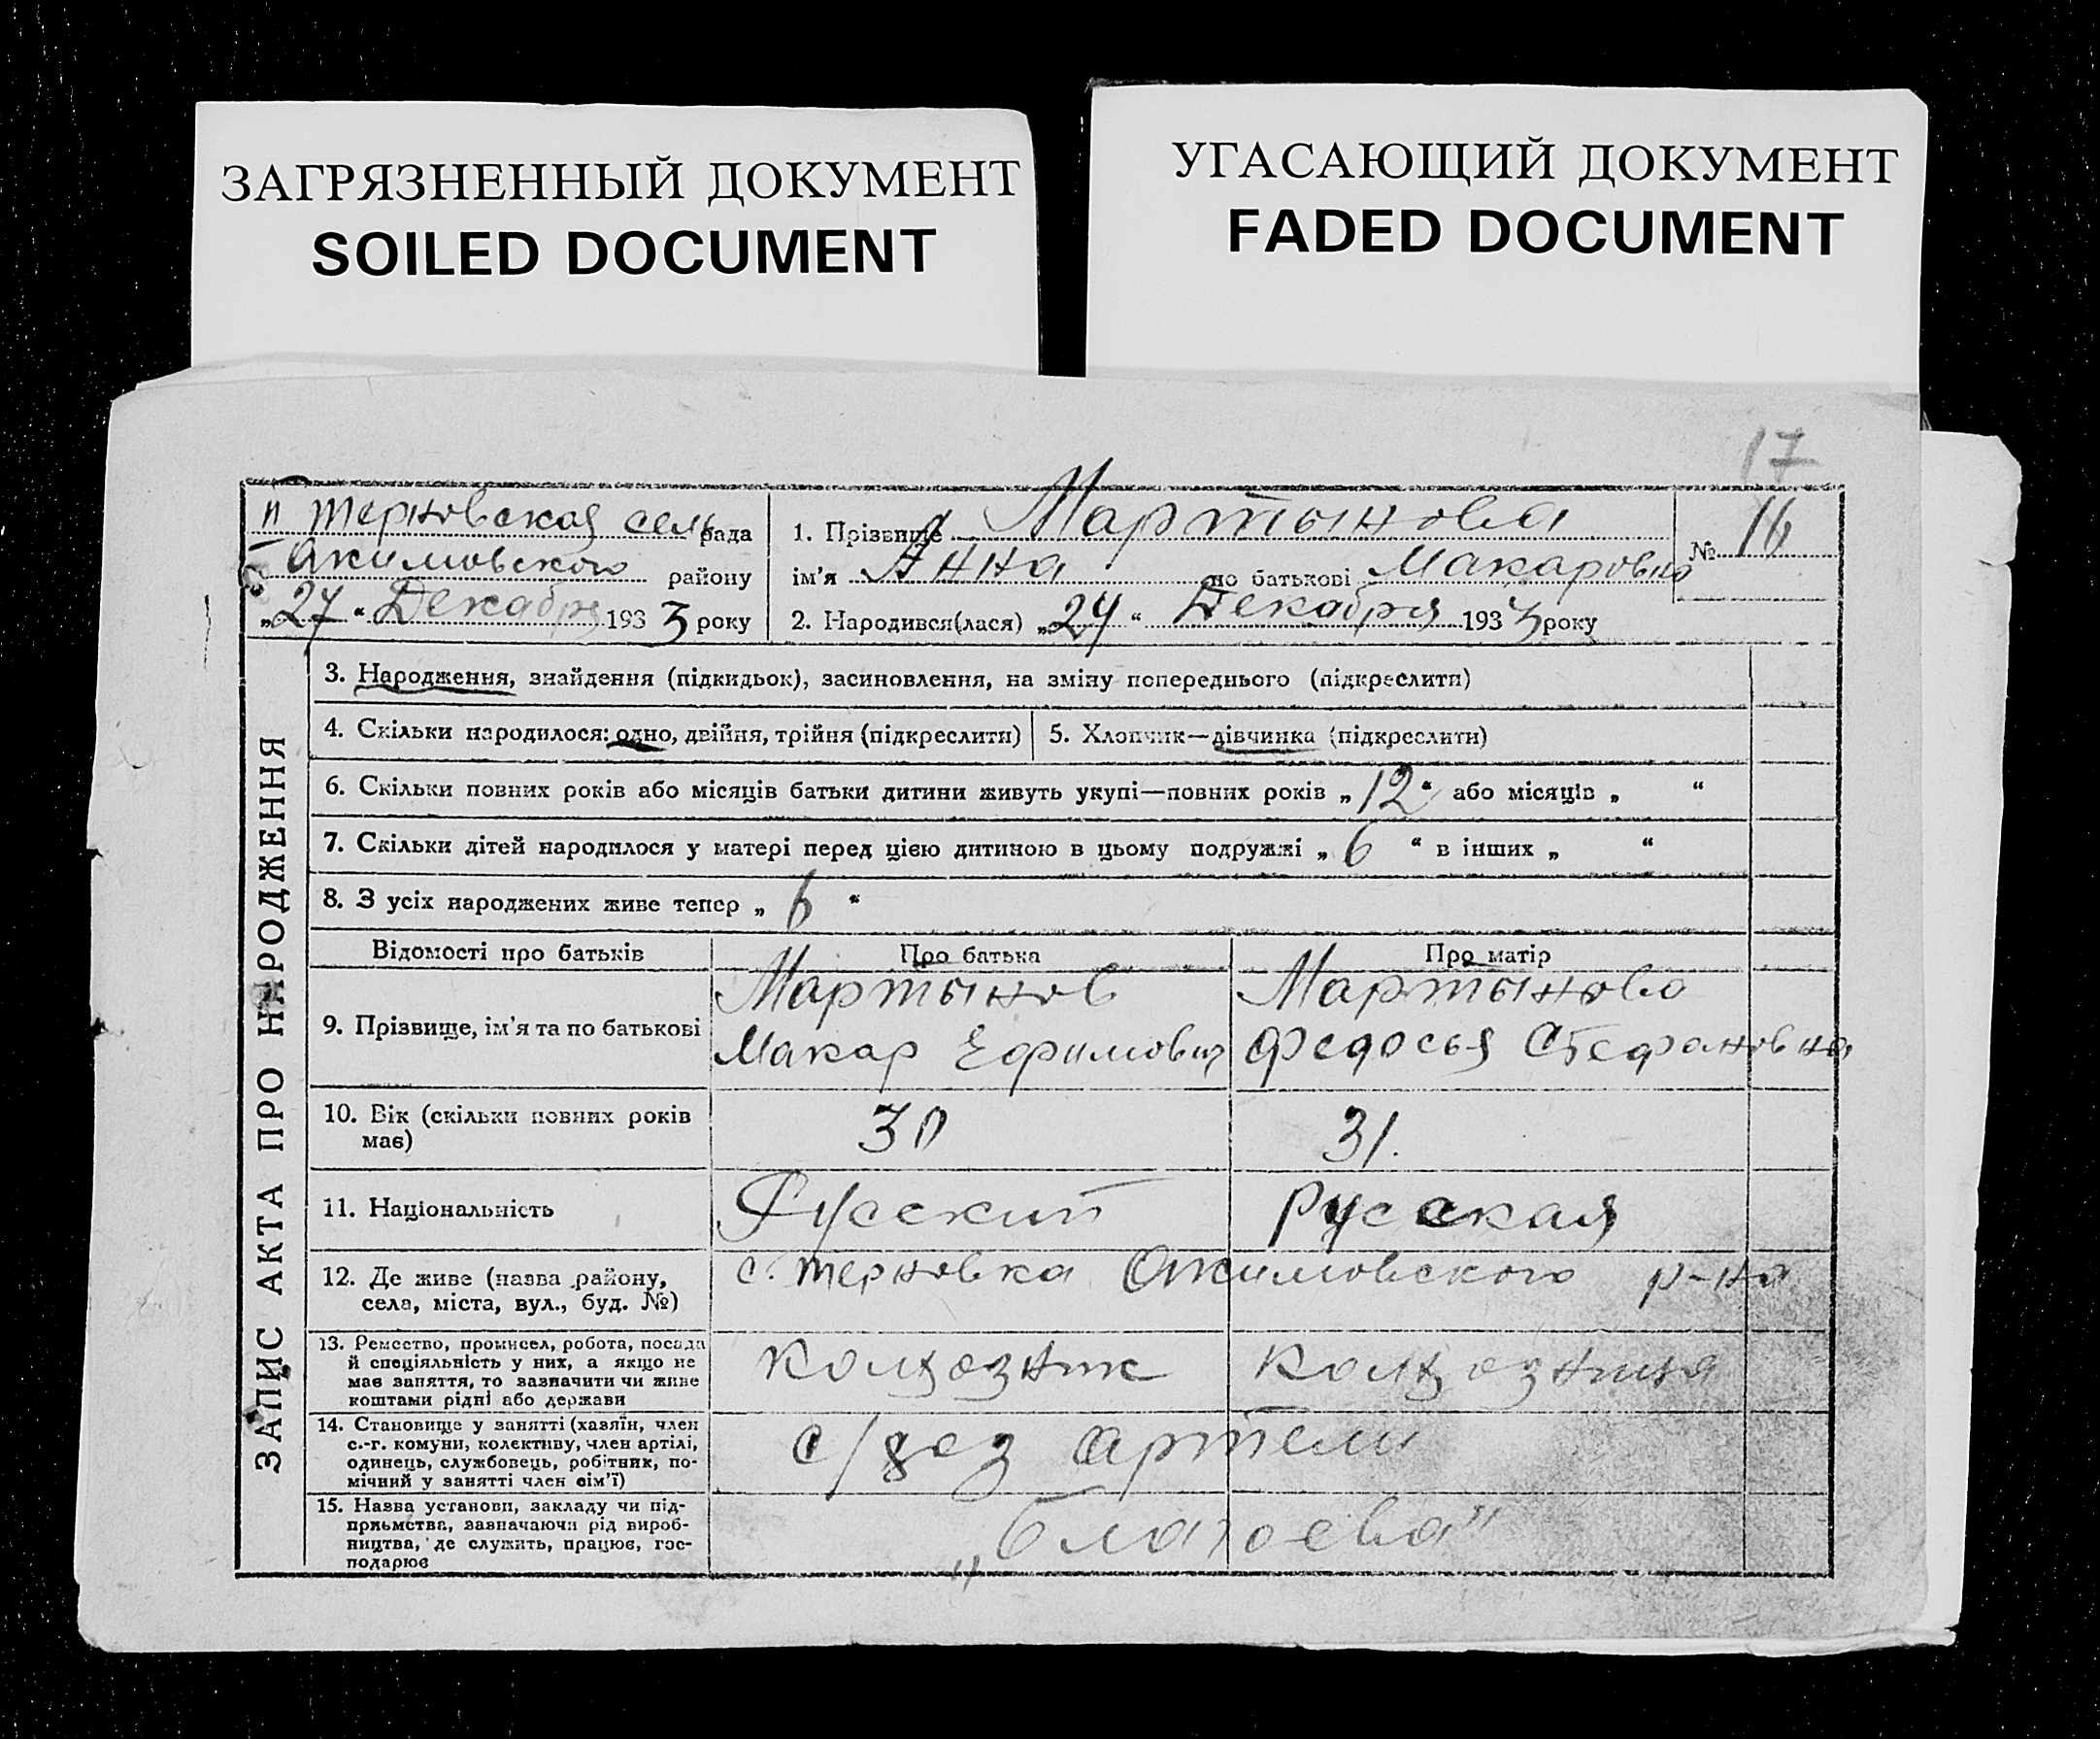 ЗАГРЯЗНЕННЫЙ ДОКУМЕНТ
SOILED DOCUMENT
УГАСАЮЩИЙ ДОКУМЕНТ
FADED DOCUMENT
17
Терновская сельрада
Акимовского району
„27“ Декабря 1933 року
1. Прізвище Мартынова
ім'я Анна по батькові Макаровна
№ 16
2. Народився(лася) „24“ Декабря 1933 року
ЗАПИС АКТА ПРО НАРОДЖЕННЯ
3. Народження, знайдення (підкидьок), засиновлення, на зміну попереднього (підкреслити)
4. Скільки народилося: одно, двійня, трійня (підкреслити)
5. Хлопчик—дівчинка (підкреслити)
6. Скільки повних років або місяців батьки дитини живуть укупі—повних років „12“ або місяців „ “
7. Скільки дітей народилося у матері перед цією дитиною в цьому подружжі „6“ в інших „ “
8. З усіх народжених живе тепер „6“
Відомості про батьків
Про батька
Про матір
9. Прізвище, ім'я та по батькові
Мартынов
Макар Ефимович
Мартынова
Федосья Стефановна
10. Вік (скільки повних років
має)
30
31.
11. Національність
Русский
Русская
12. Де живе (назва району,
села, міста, вул., буд. №)
с. Терновка Акимовского р-на
13. Ремество, промисел, робота, посада
й спеціяльність у них, а якщо не
має заняття, то зазначити чи живе
коштами рідні або держави
колхозник
колхозница
14. Становище у занятті (хазяїн, член
с.-г. комуни, колективу, член артілі,
одинець, службовець, робітник, по-
мічний у занятті член сім'ї)
с/хоз артели
15. Назва установи, закладу чи під-
приємства, зазначаючи рід вироб-
ництва, де служить, працює, гос-
подарює
„Благоева"